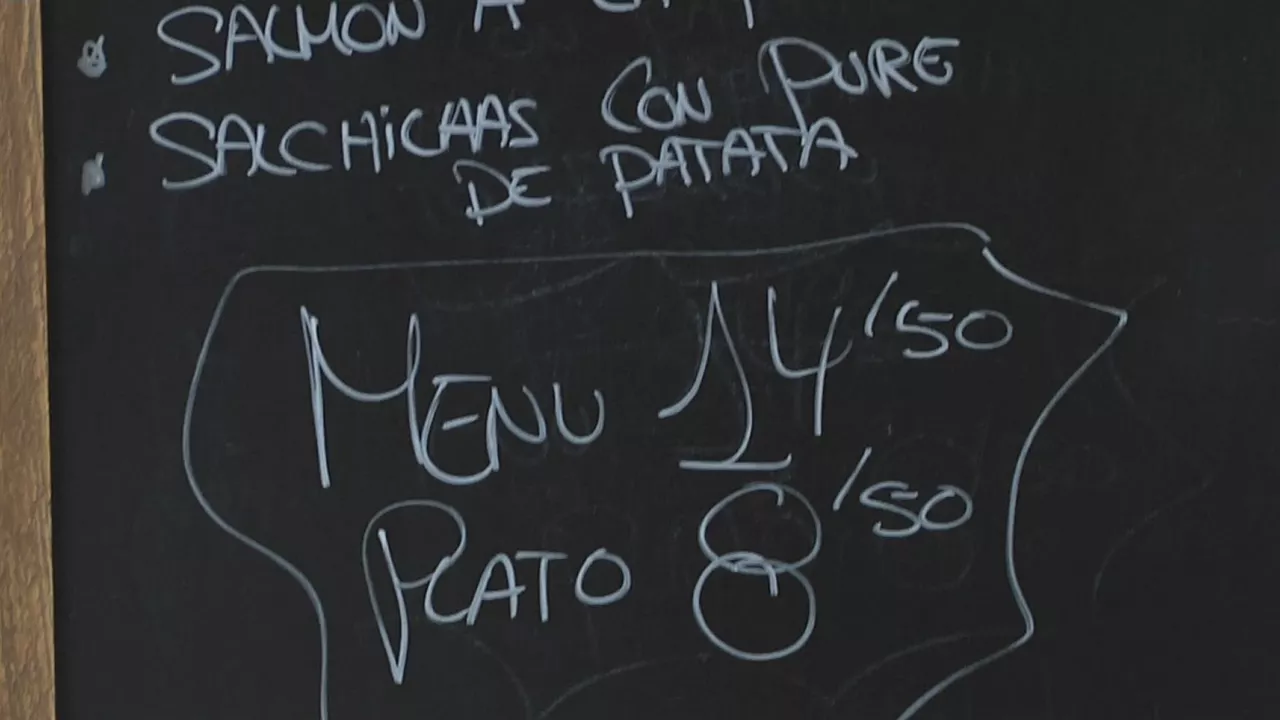 SALMON A
SALCHICHAS CON PURE
DE PATATA
MENU 14'50
PLATO 8'50